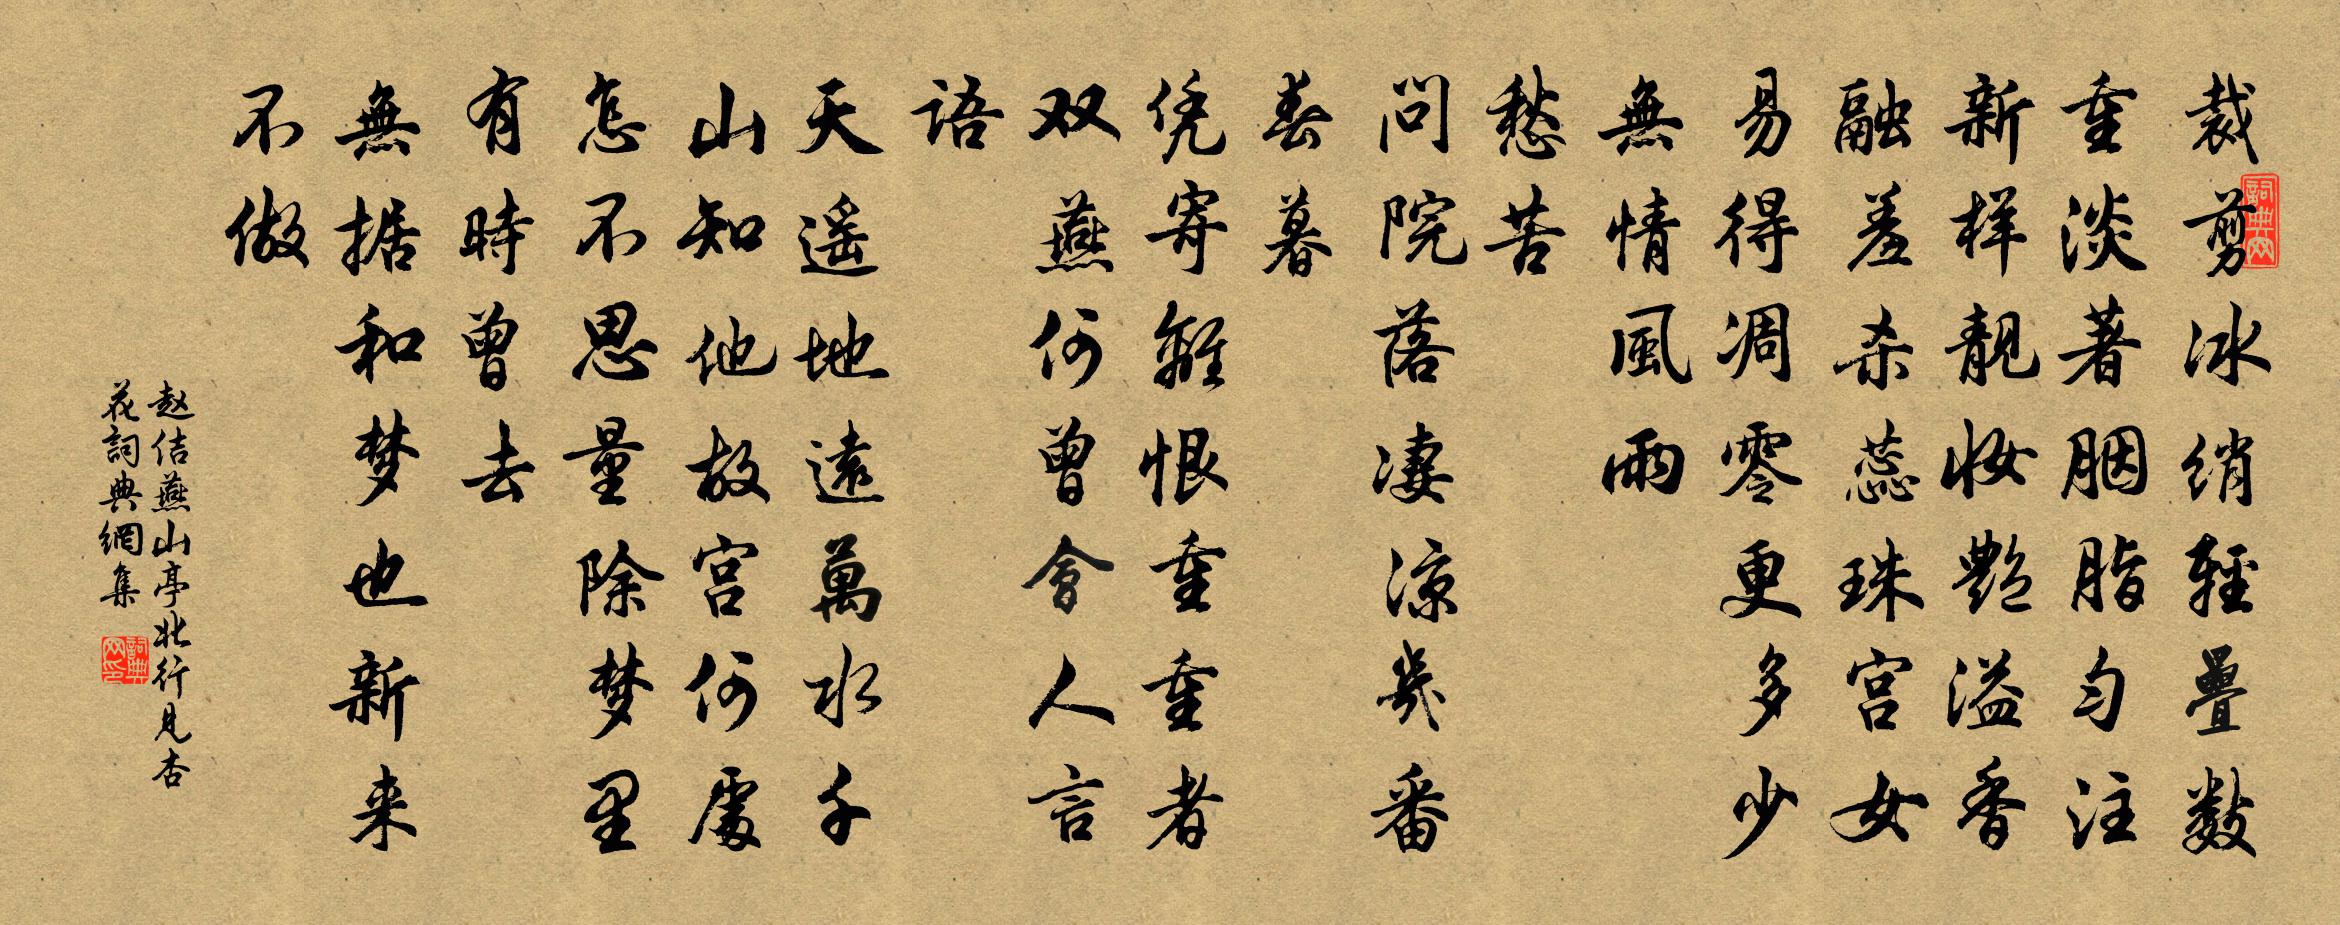 裁剪冰绡轻疊数
重淡著胭脂匀注
新样靓妆艶溢香
融羞杀蕊珠宫女
易得凋零更多少
無情風雨
愁苦
问院落凄涼幾番
春暮
凭寄離恨重重者
双燕何曾會人言
语
天遥地遠萬水千
山知他故宫何處
怎不思量除梦里
有時曾去
無据和梦也新来
不做
赵佶燕山亭北行見杏
花詞典網集
詞典网
詞典网印